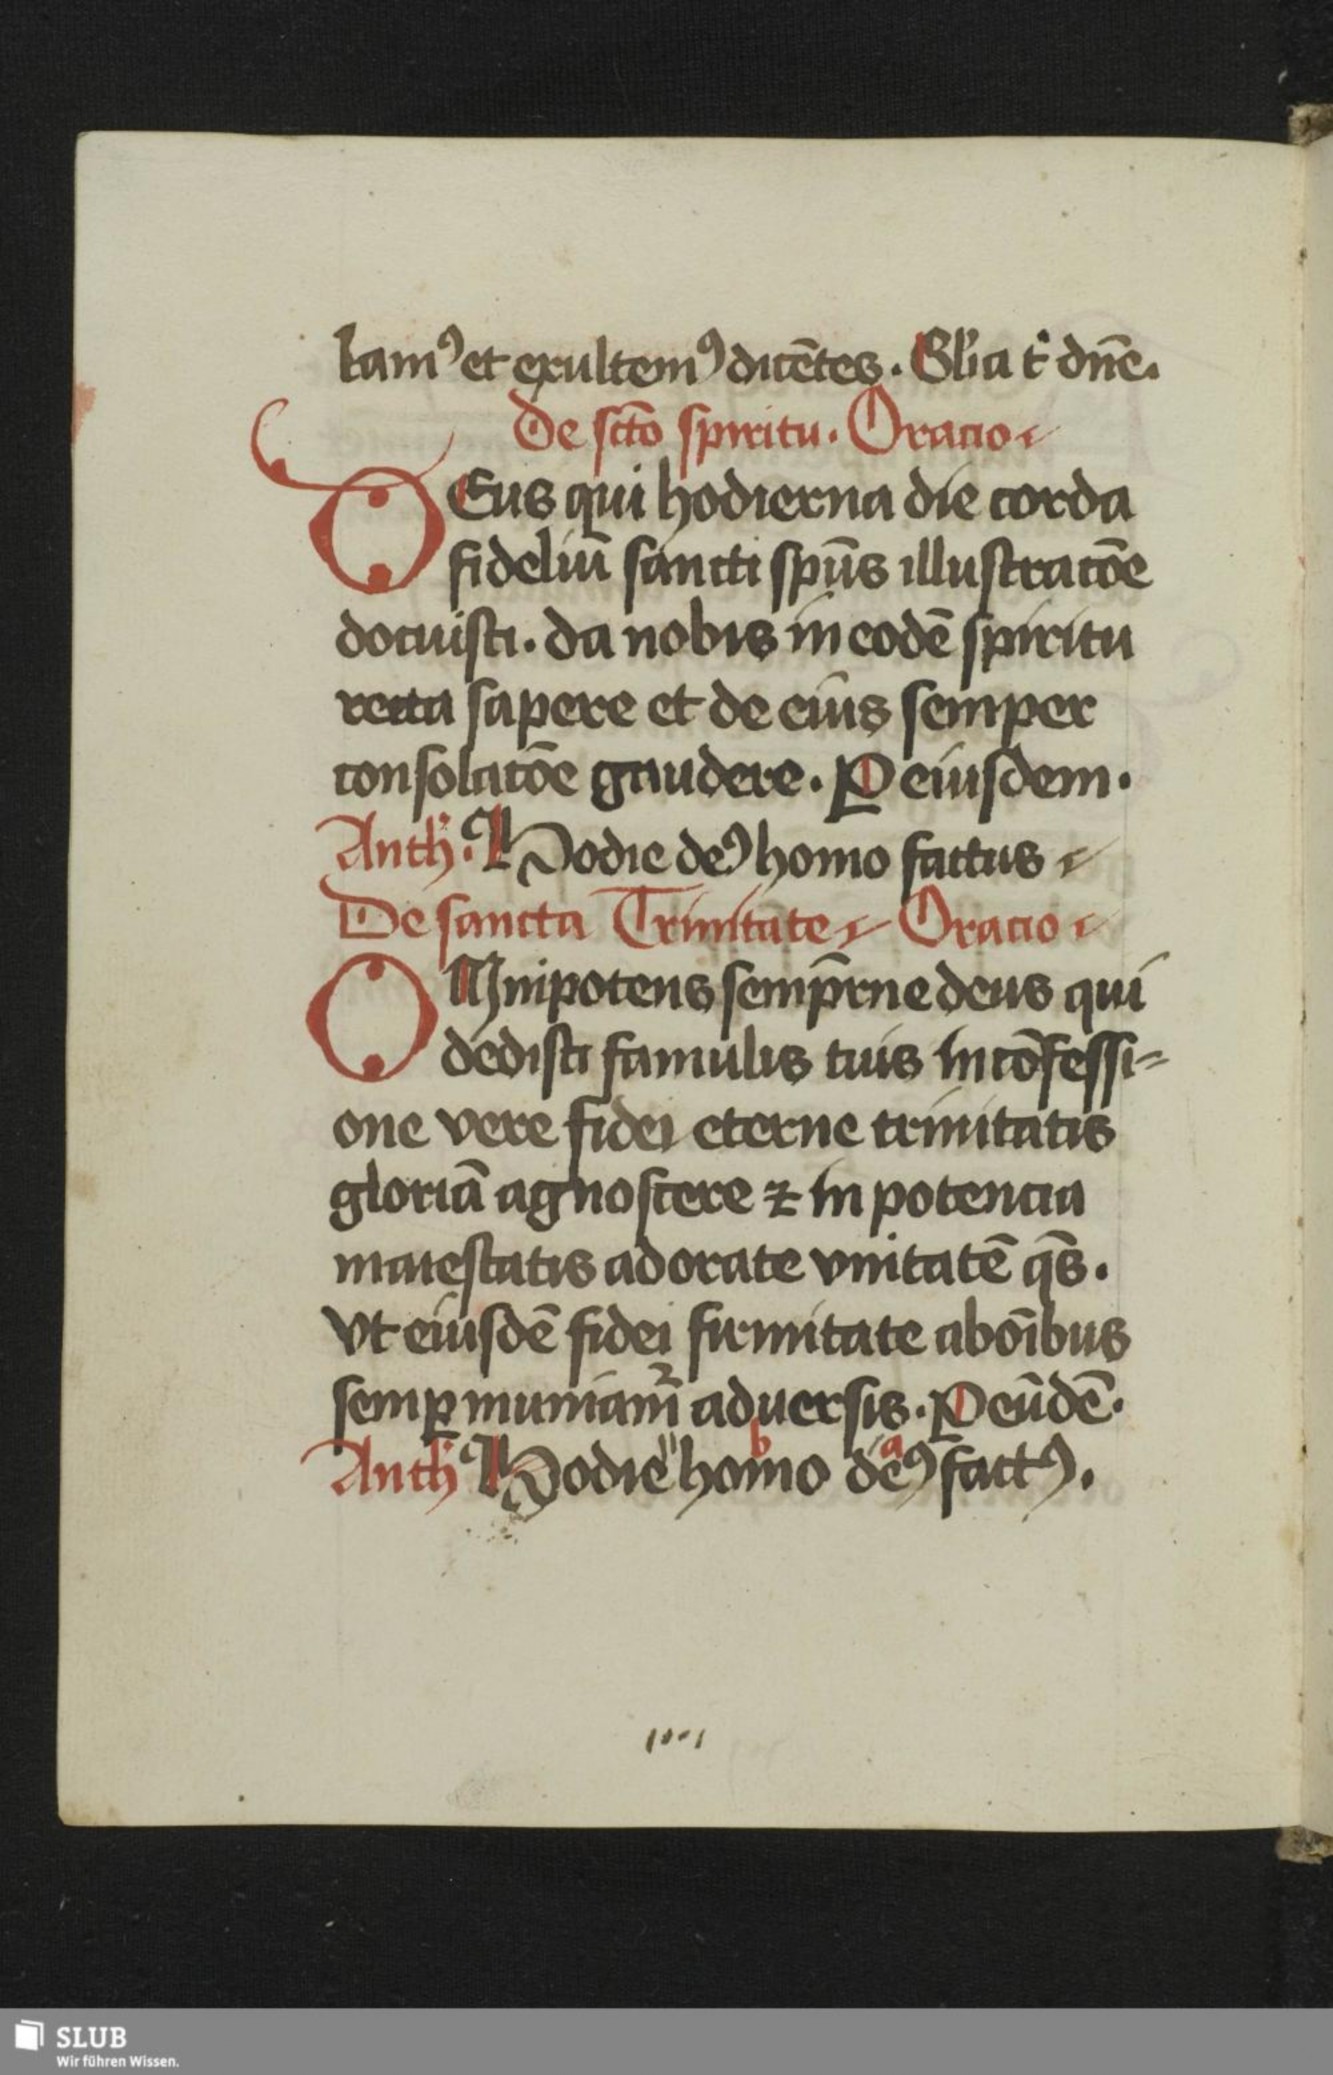 lam⁹ et exultem⁹ dicētes. Gl'ia t' dn̄e.
De scto̅ spiritu. Oracio
DEus qui hodierna die corda
fideliū sancti spūs illustracōe
docuisti. da nobis in eodē spiritu
recta sapere et de eius semper
consolacōe gaudere. P eiusdem.
Anth'. Hodie de⁹ homo factus
De sancta Trinitate Oracio
OMnipotens semp̄rne deus qui
dedisti famulis tuis in cōfessi-
one vere fidei eterne trinitatis
gloriā agnoscere ⁊ in potencia
maiestatis adorare vnitatē qs̄.
Vt eiusdē fidei firmitate ab oībus
semꝑ muniam̄ aduersis. P eūdē.
Anth' Hodie homo de⁹ fact⁹.
b a
SLUB
Wir führen Wissen.